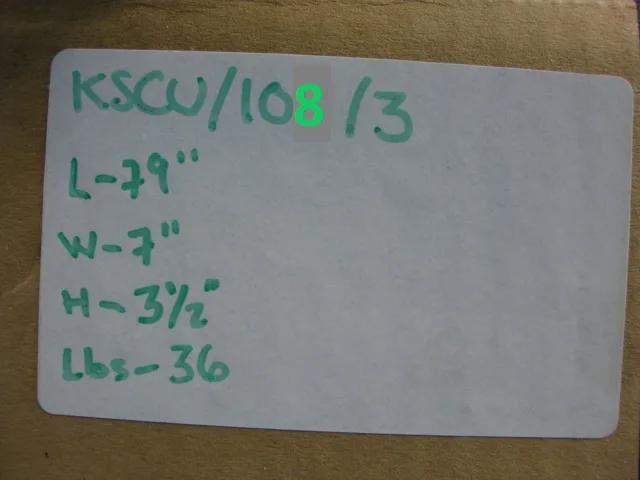 KSCU/108/3
L-79"
W-7"
H-3½"
Lbs-36